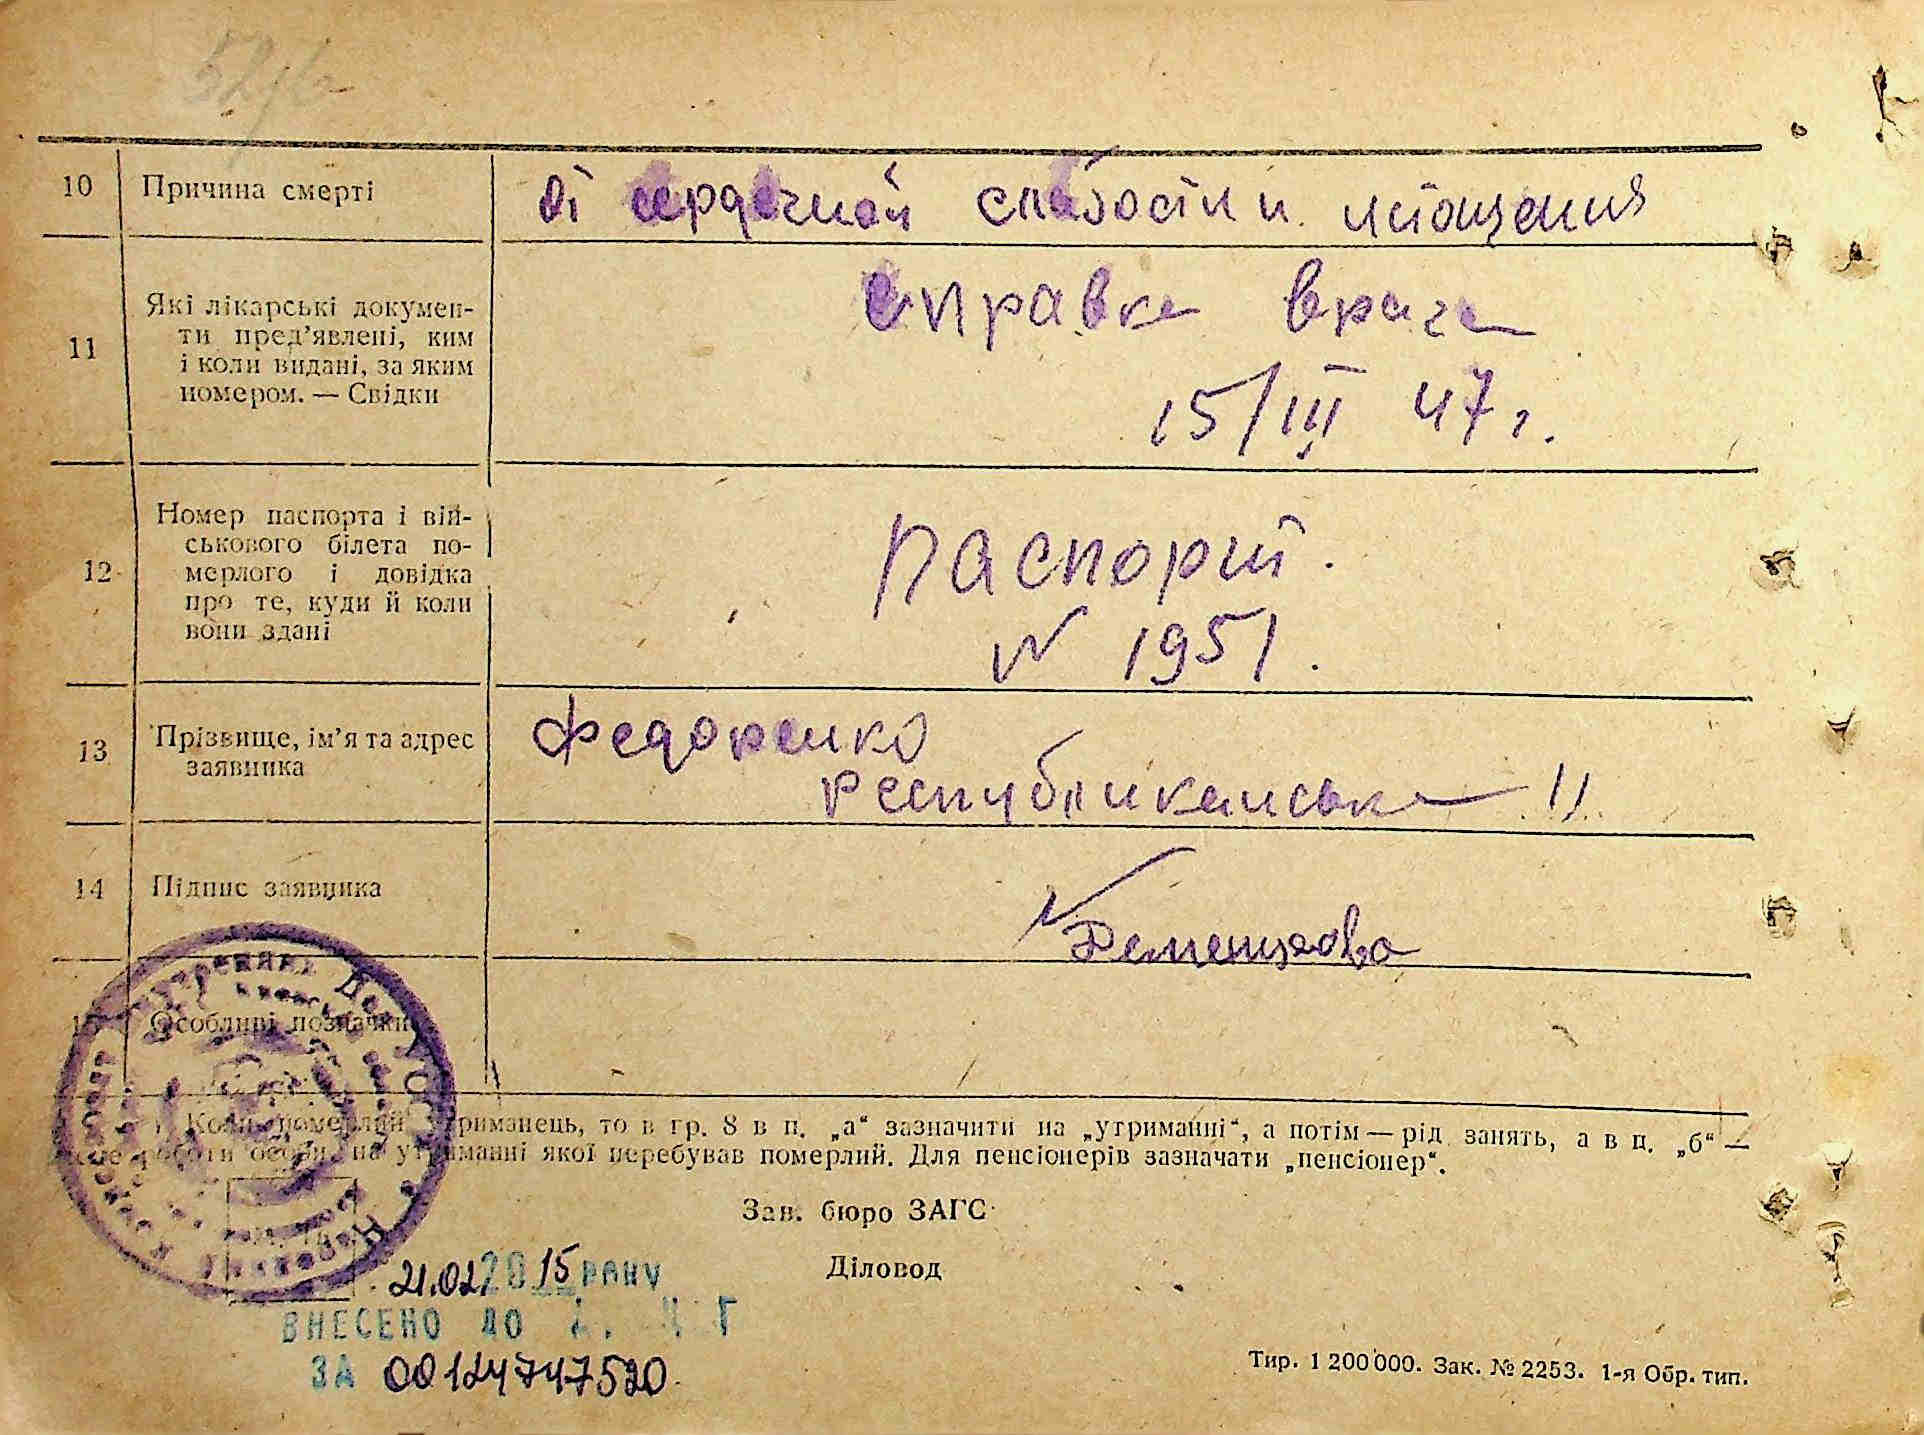 10 Причина смерті от сердечной слабости и истощения
11 Які лікарські докумен-
ти пред’явлені, ким
і коли видані, за яким
номером. — Свідки
справка врача
15/III 47 г.
12 Номер паспорта і вій-
ськового білета по-
мерлого і довідка
про те, куди й коли
вони здані
паспорт.
N 1951.
13 Прізвище, ім’я та адрес
заявника
Федоренко
Республиканська 11
14 Підпис заявника
15 Особливі позначки
Коли померлий утриманець, то в гр. 8 в п. „а“ зазначити на „утриманні“, а потім — рід занять, а в п. „б“ —
роботи особи, на утриманні якої перебував померлий. Для пенсіонерів зазначати „пенсіонер“.
Зав. бюро ЗАГС
Діловод
21.02.2015 РАНУ
ВНЕСЕНО ДО
ЗА 00124747520
Тир. 1 200 000. Зак. № 2253. 1-я Обр. тип.